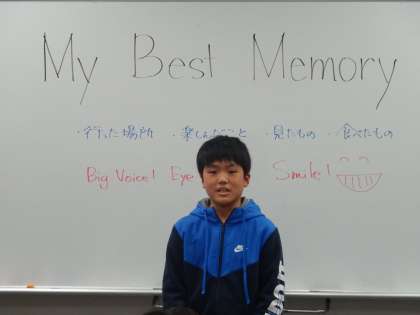 My Best Memory
・行った場所 ・楽しんだこと ・見たもの ・食べたもの
Big Voice! Eye Smile!